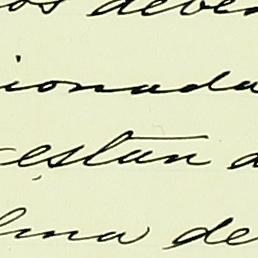 os deben
ionada
estan d
lma de